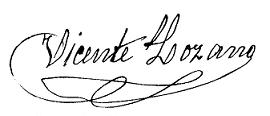 Vicente Lozano